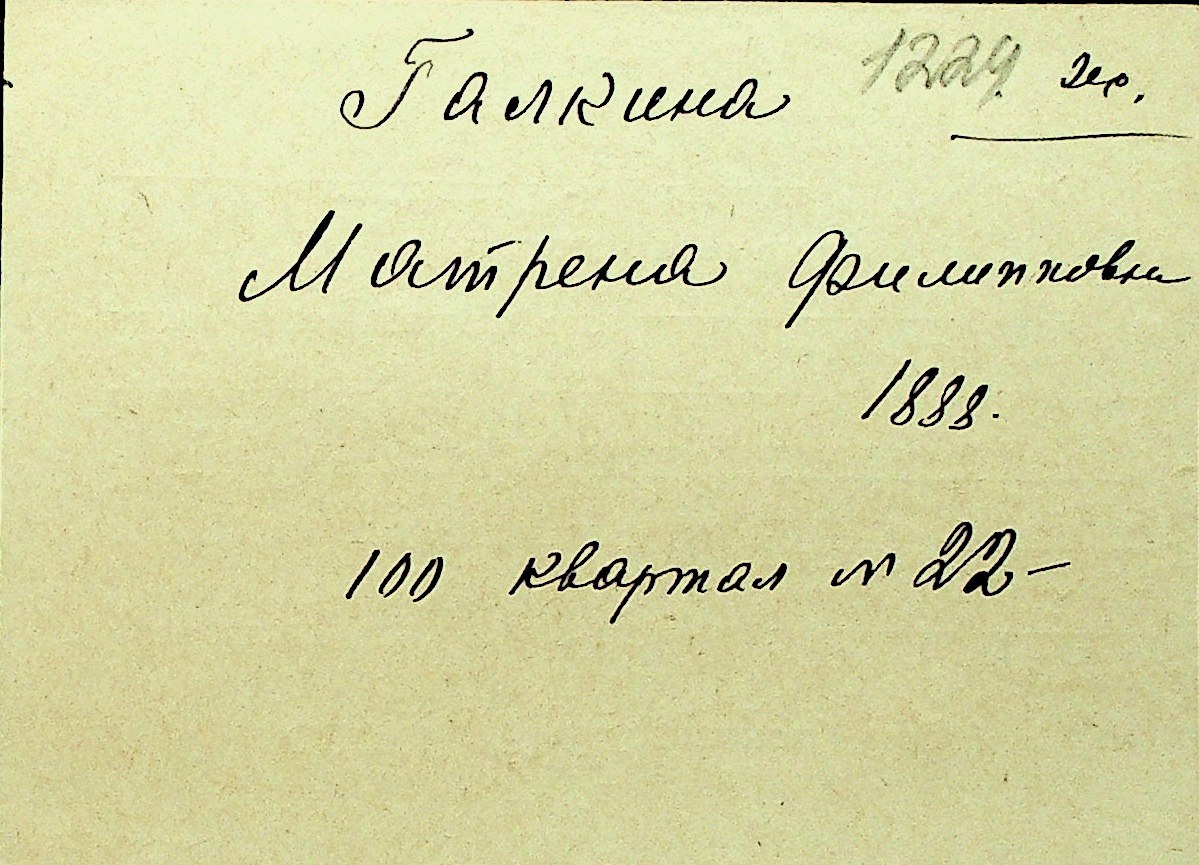 Галкина 1229
Матрена Филипповна
1888.
100 квартал № 22-